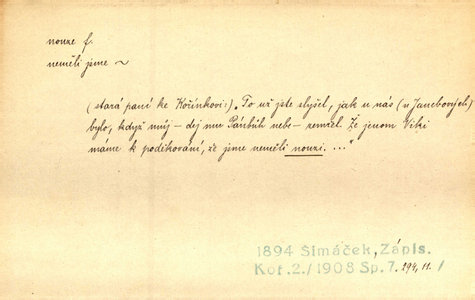 nouze f.
neměli jsme ~
(stará paní ke Kořínkovi:) „To už jste slyšel, jak u nás (u Janebových)
bylo, když můj – dej mu Pánbůh nebe – zemřel. Že jenom Viki
máme k poděkování, že jsme neměli nouzi. ..."
1894 Šimáček, Zápis.
Koř.2./1908 Sp.7. 294, 11. /